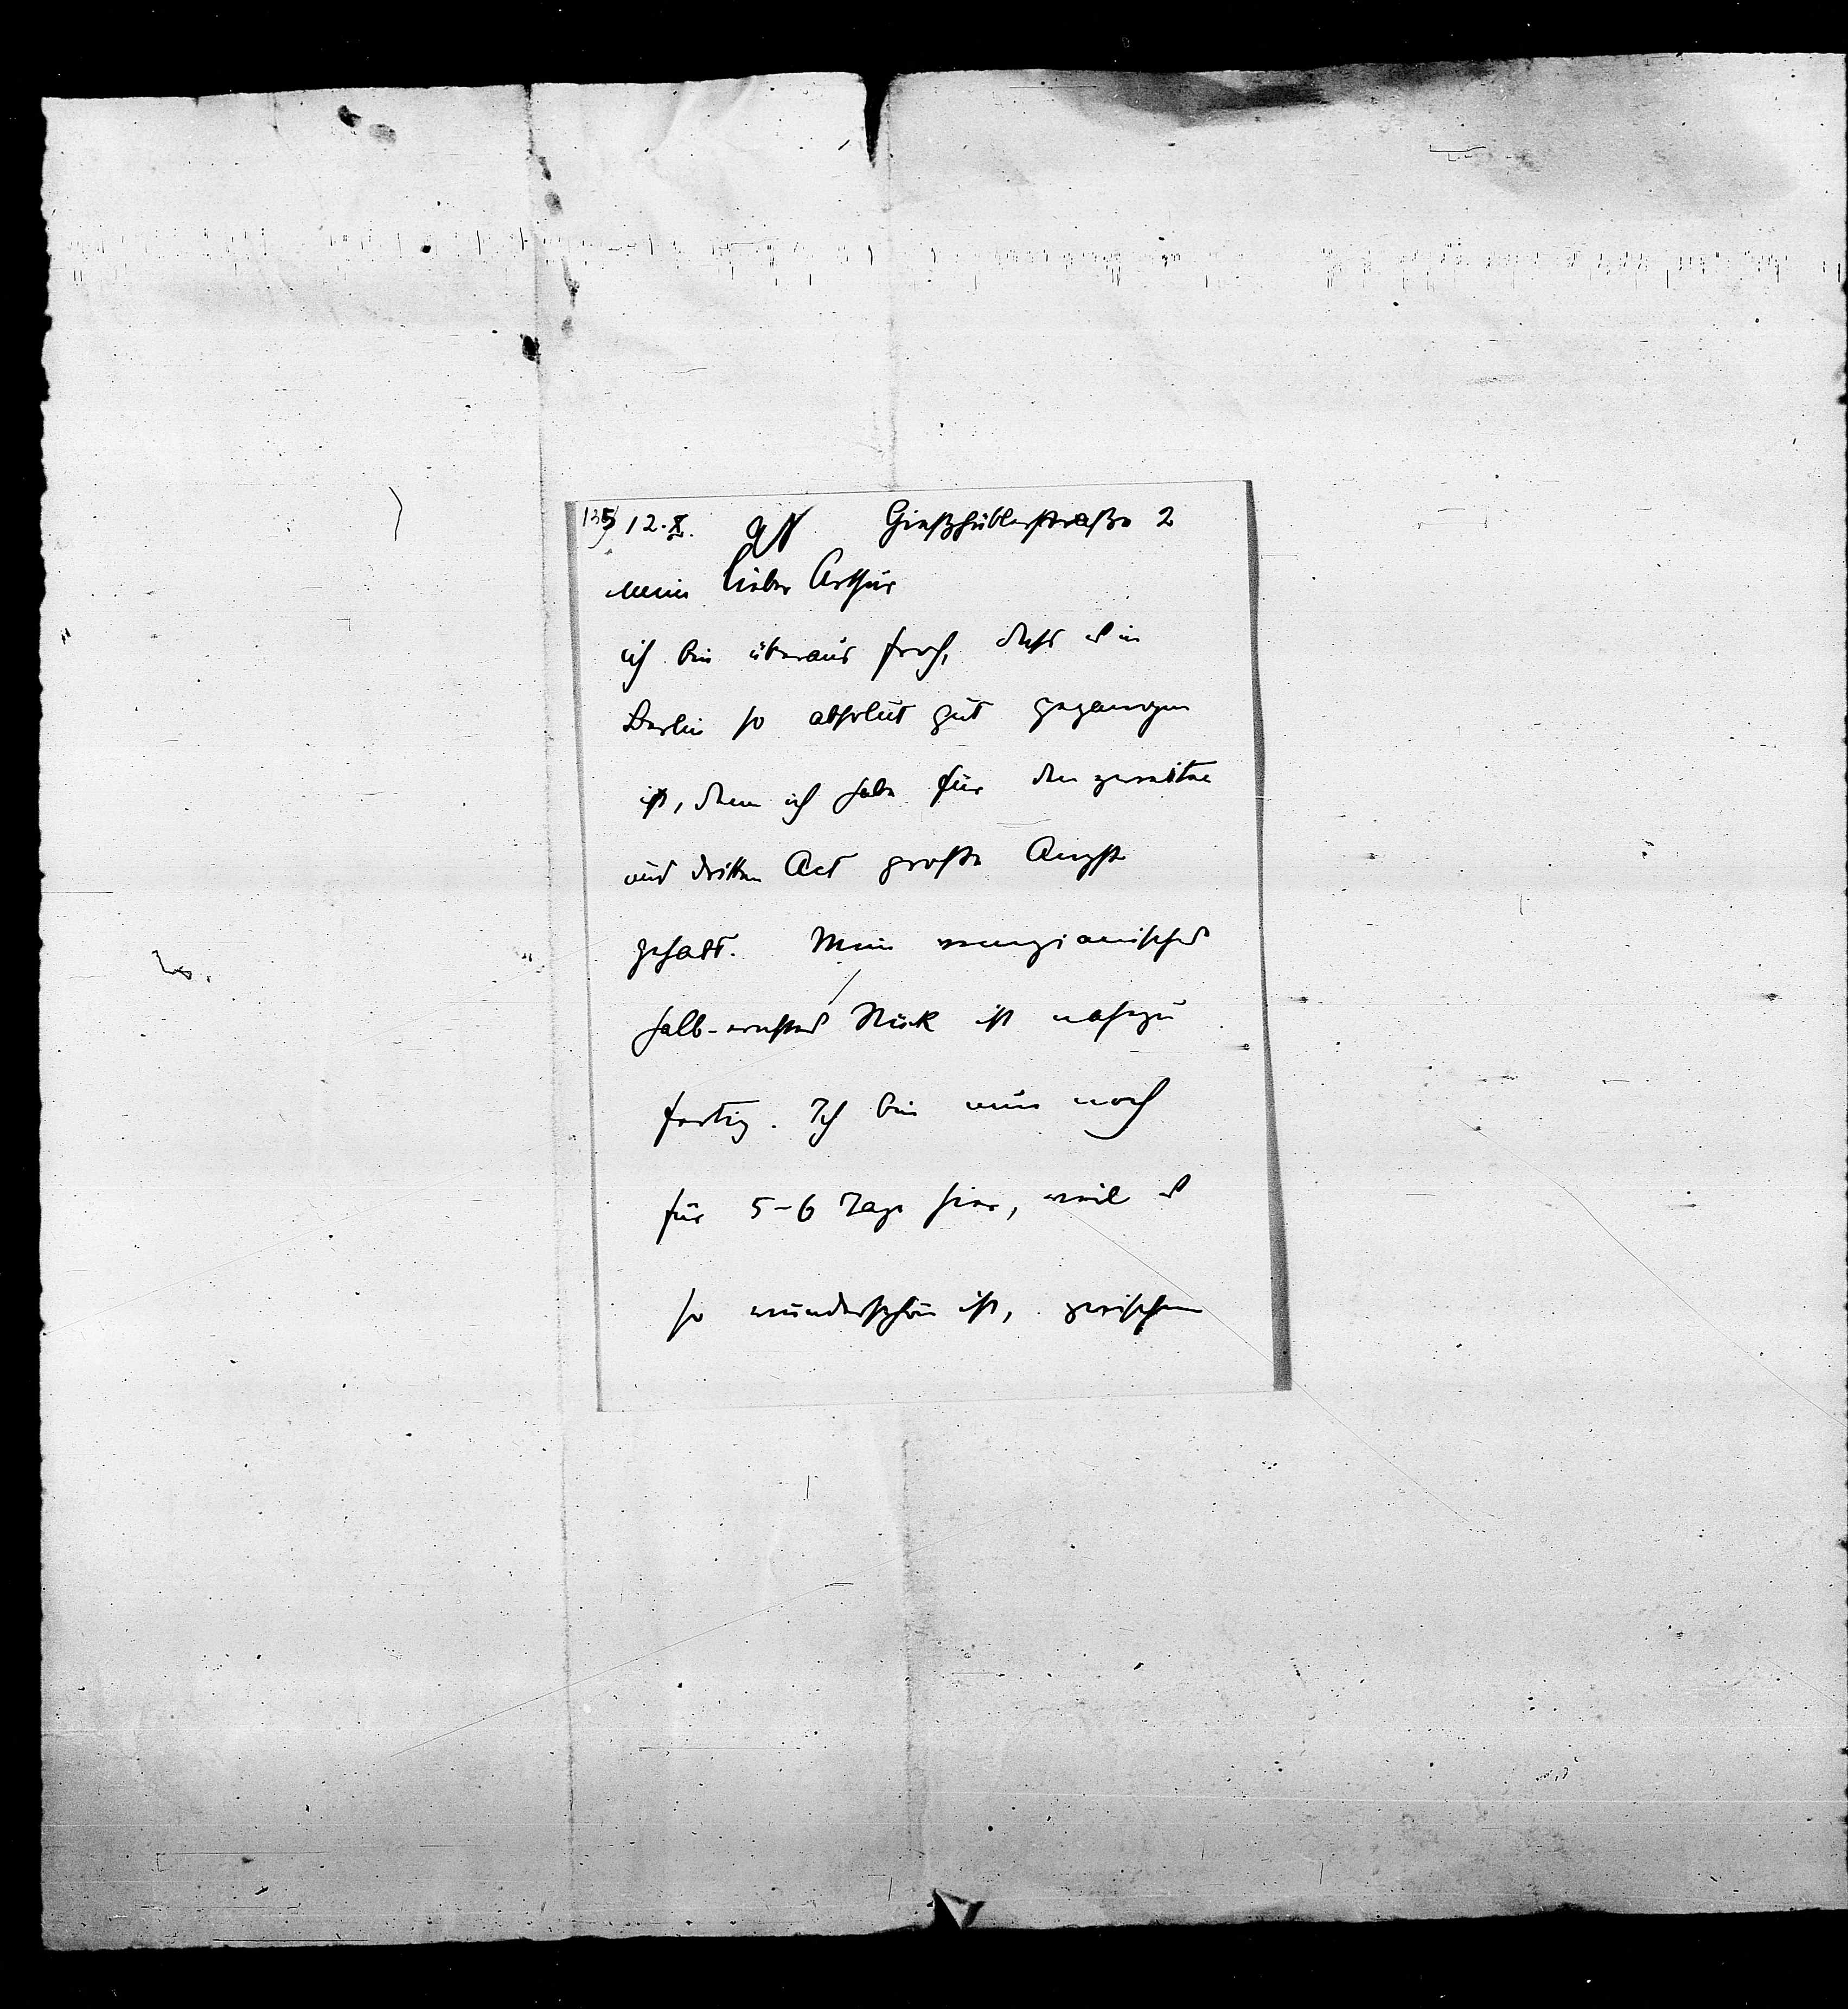 135 12. X. 98 Gießhüblerstraße 2
mein lieber Arthur
ich bin überaus froh, dass es in
Berlin so absolut gut gegangen
ist, denn ich habe für den zweiten
und dritten Act große Angst
gehabt. Mein venezianisches
halb-ernstes Stück ist nahezu
fertig. Ich bin nur noch
für 5-6 Tage hier, weil es
so wunderschön ist, zwischen